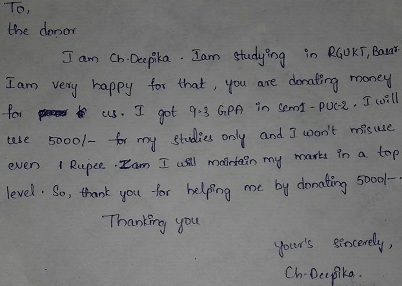 To,
the donor
I am Ch-Deepika. Iam studying in RGUKT, Basar
Iam very happy for that, you are donating money
for us. I got 9.3 GPA in Sem1-PUC-2. I will
use 5000/- for my studies only and I won't misuse
even 1 Rupee. I will maintain my marks in a top
level. So, thank you for helping me by donating 5000/-.
Thanking you
your's sincerely,
Ch-Deepika.